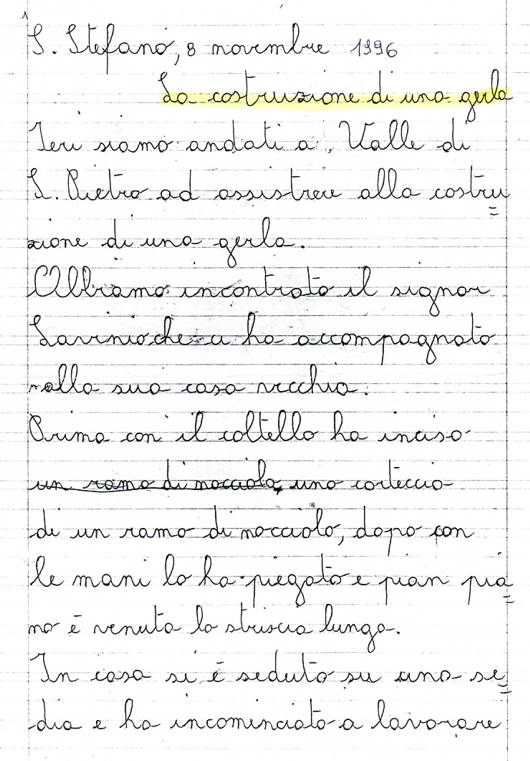 S. Stefano, 8 novembre 1996
La costruzione di una gerla
Ieri siamo andati a Valle di
S. Pietro ad assistere alla costru=
zione di una gerla.
Abbiamo incontrato il signor
Lavinio che ci ha accompagnato
nella sua casa vecchia.
Prima con il coltello ha inciso
un ramo di nocciola, una corteccia
di un ramo di nocciolo, dopo con
le mani lo ha piegato e pian pia=
no è venuta la striscia lunga.
In casa si è seduto su una se=
dia e ha incominciato a lavorare